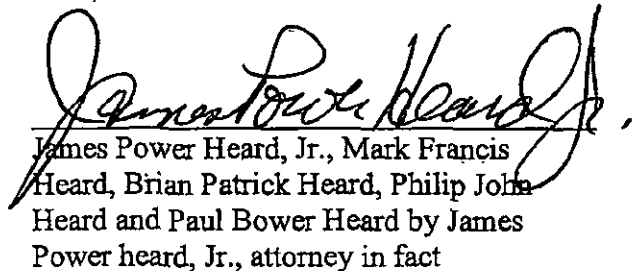 James Power Heard Jr.
James Power Heard, Jr., Mark Francis
Heard, Brian Patrick Heard, Philip John
Heard and Paul Bower Heard by James
Power heard, Jr., attorney in fact